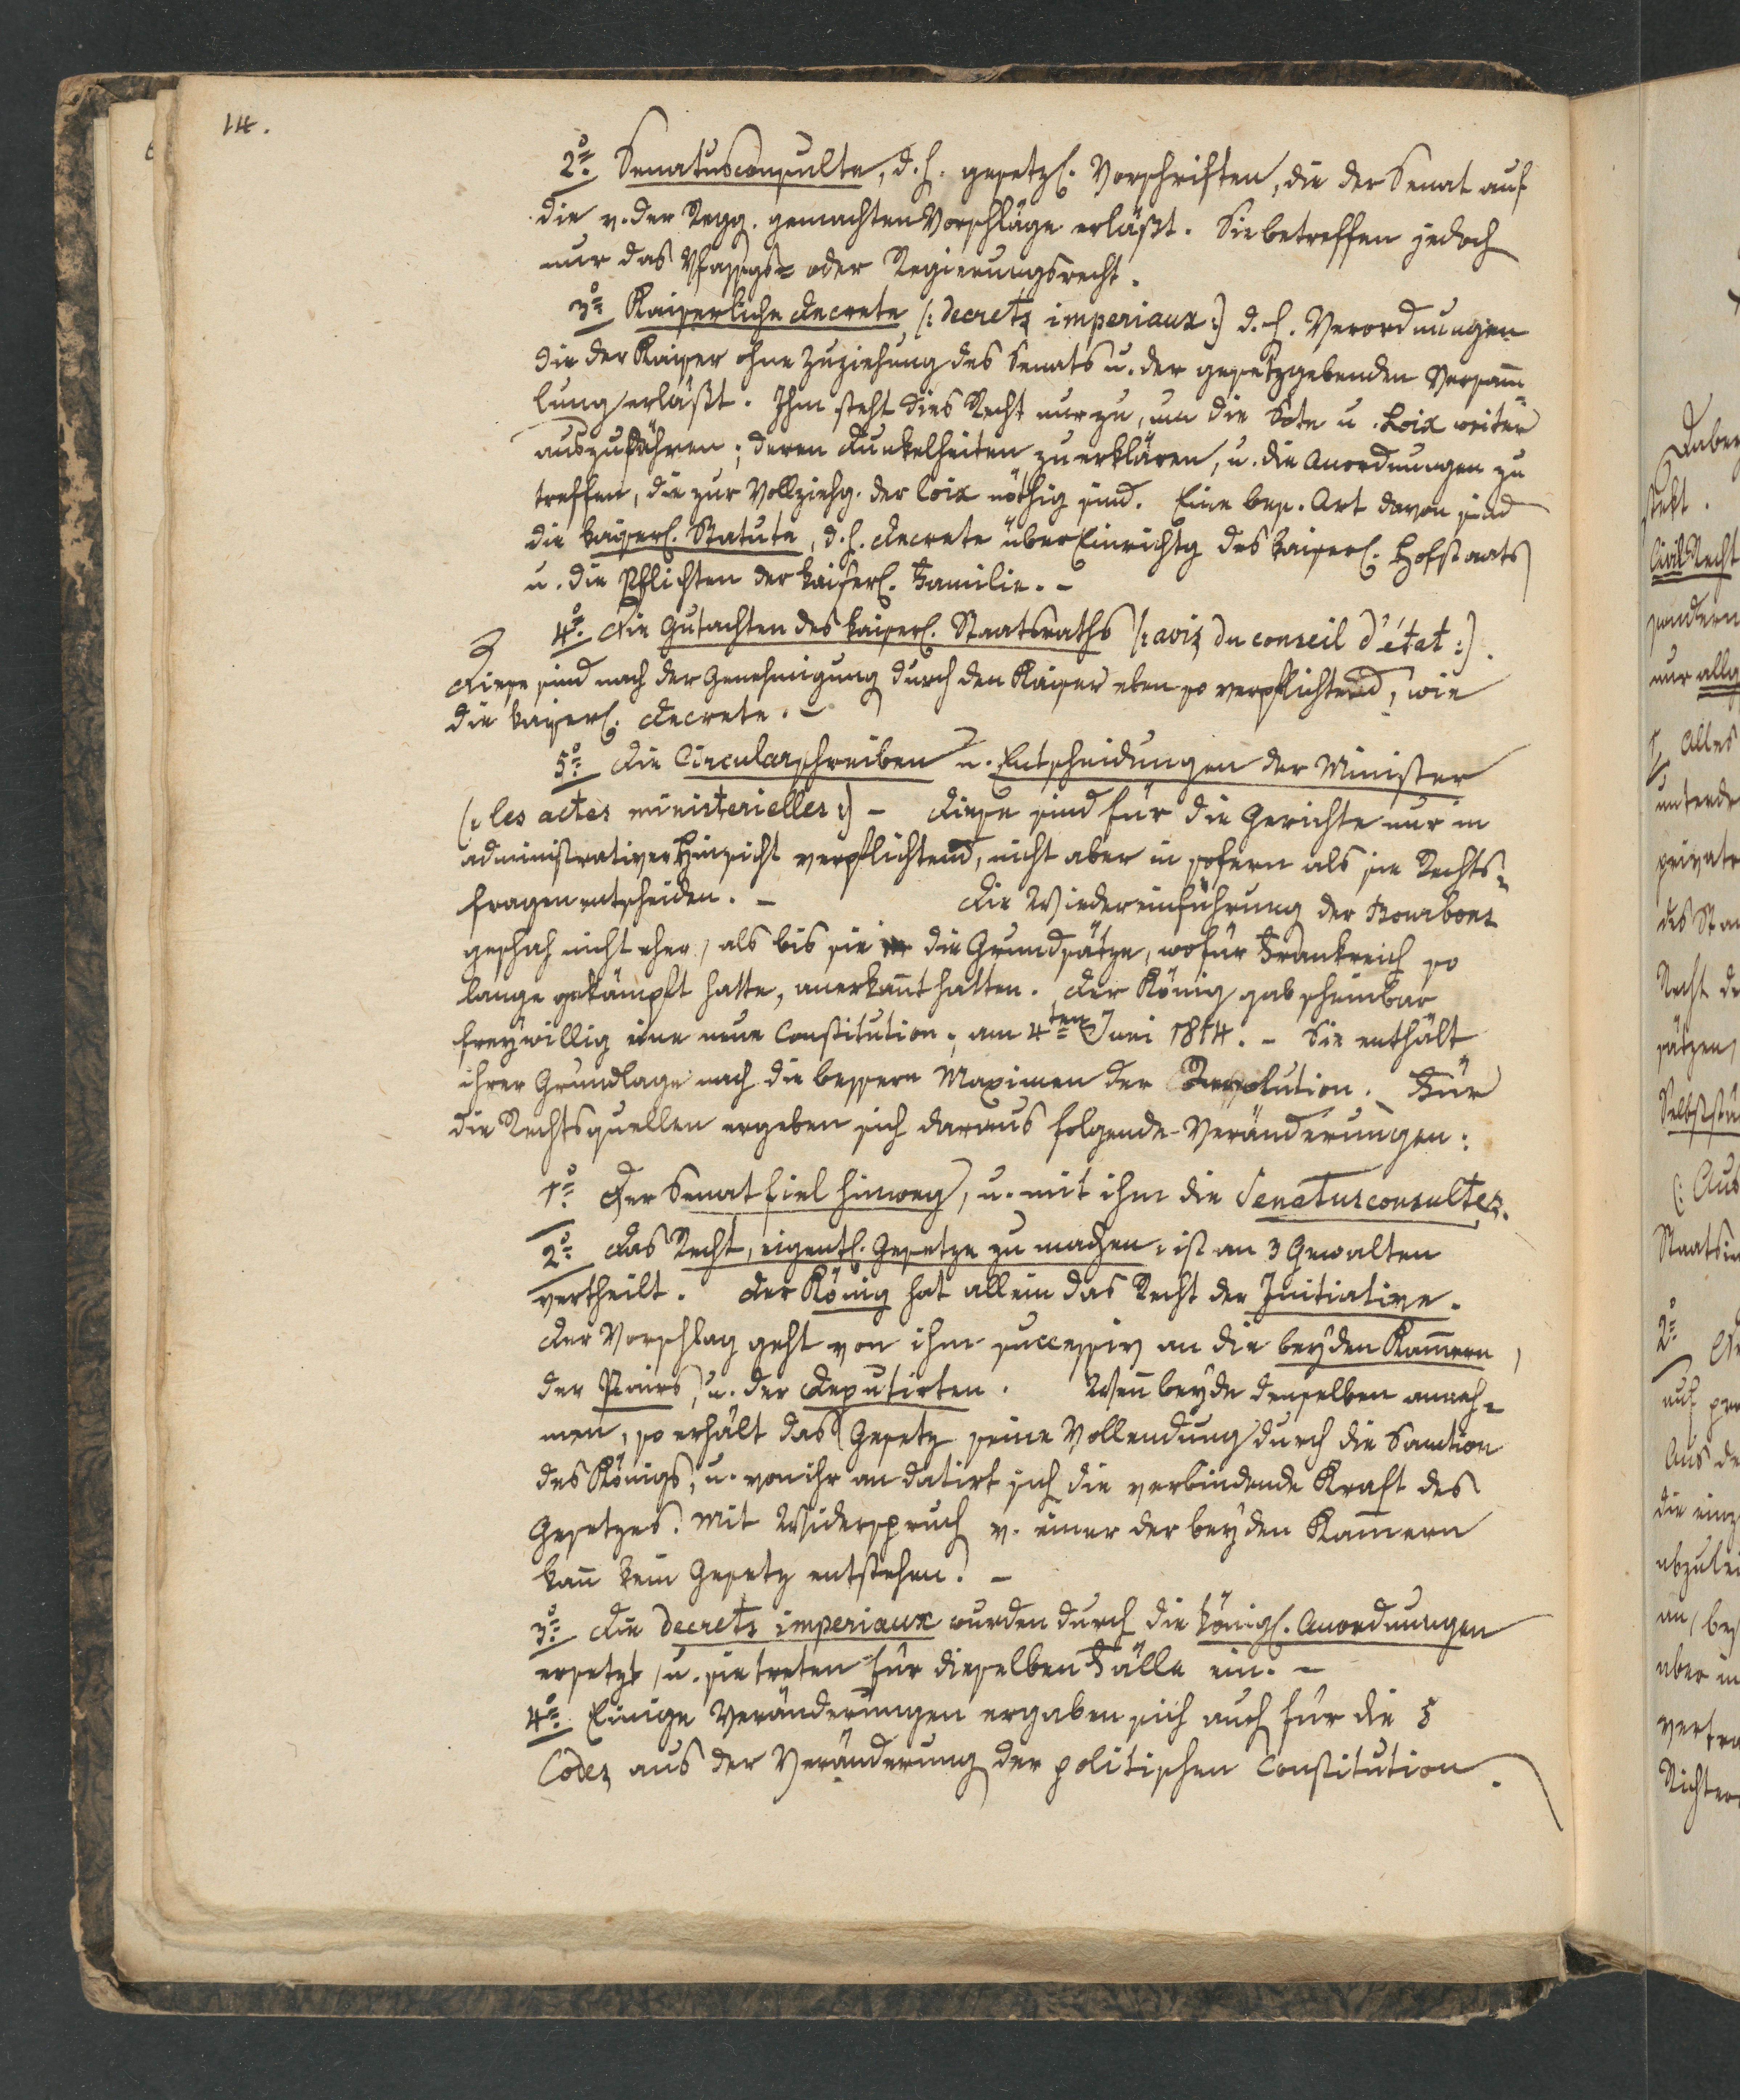 14.
2o Senatusconsulte, d. h. gesetzl. Vorschriften, die der Senat auf
die v. der Regg. gemachten Vorschläge erläßt. Sie betreffen jedoch
nur das Vfassgs= oder Regierungsrecht.
3o Kaiserliche Decrete (: decrets imperiaux :) d. h. Verordnungen
die der Kaiser ohne Zuziehung des Senats u. der gesetzgebenden Versam̅=
lung erläßt. Ihm steht dies Recht nur zu, um die Scte u. Loix weiter
auszuführen; deren Dunkelheiten zu erklären, u. die Anordnungen zu
treffen, die zur Vollziehg. der loix nöthig sind. Eine bes. Art davon sind
die kaiserl. Statute, d. h. Decrete über Einrichtg des kaiserl. Hofstaats
u. die Pflichten der kaiserl. Familie. –
4o Die Gutachten des kaiserl. Staatsraths (: avis du conseil d'état :).
Diese sind nach der Genehmigung durch den Kaiser eben so verpflichtend, wie
die kaiserl. Decrete. –
5o Die Circularschreiben u. Entscheidungen der Minister
(: les actes ministerielles :) – Diese sind für die Gerichte nur in
administrativer Hinsicht verpflichtend, nicht aber in sofern als sie Rechts=
fragen entscheiden. – Die Wiedereinführung der Bourbons
geschah nicht eher, als bis sie die Grundsätze, wofür Frankreich so
lange gekämpft hatte, anerkan̅t hatten. Der König gab scheinbar
freywillig eine neue Constitution, am 4ten Juni 1814. – Sie enthält
ihrer Grundlage nach die bessern Maximen der Revolution. Für
die Rechtsquellen ergeben sich daraus folgende Veränderungen:
1o Der Senat fiel hinweg, u. mit ihm die Senatusconsultes.
2o Das Recht, eigentl. Gesetze zu machen, ist an 3 Gewalten
vertheilt. Der König hat allein das Recht der Initiative.
Der Vorschlag geht von ihm successiv an die beyden Kam̅ern,
der Pairs, u. der Deputirten. Wen̅ beyde denselben anneh=
men, so erhält das Gesetz seine Vollendung durch die Sanction
des Königs, u. von ihr an datirt sich die verbindende Kraft des
Gesetzes. Mit Widerspruch v. einer der beyden Kam̅ern
kan̅ kein Gesetz entstehen. –
3o Die decrets imperiaux wurden durch die königl. Anordnungen
ersetzt, u. sie treten für dieselben Fälle ein. –
4o Einige Veränderungen ergaben sich auch für die 5
Codes aus der Veränderung der politischen Constitution.
Civil Recht
sondern
nur allg
1 Alles
privat
des
Recht de
sätzen,
(: Aus
2o
auf
Aus de
die einz
an, bey
aber in
Richter